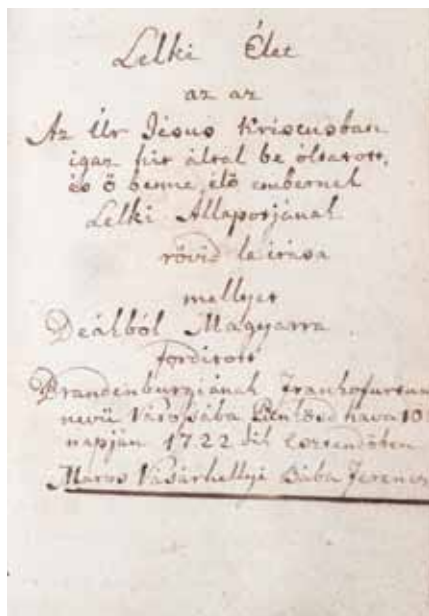 Lelki Élet
az az
Az Úr Jésus Kriscusban
igaz hit által be óltatott,
és ő benne élő embernek
Lelki Állapotjának
rövid le irása
mellyet
Deákból Magyarra
forditott
Brandenburgiának Frankofurtum
nevü Várossába hava 10
napján 1722 dik Esztendőben
Maros Vásárhellyi Bába Ferencz